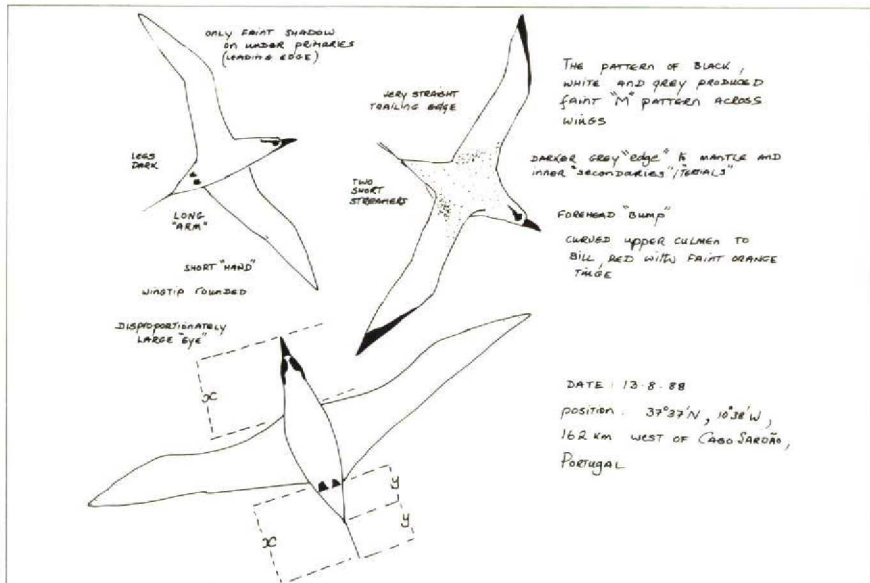 ONLY FAINT SHADOW
ON UNDER PRIMARIES
(LEADING EDGE)
LEGS
DARK
LONG
"ARM"
SHORT "HAND"
WINGTIP ROUNDED
VERY STRAIGHT
TRAILING EDGE
TWO
SHORT
STREAMERS
THE PATTERN OF BLACK,
WHITE AND GREY PRODUCED
FAINT "M" PATTERN ACROSS
WINGS
DARKER GREY "EDGE" to MANTLE AND
INNER "SECONDARIES"/TERIALS"
FOREHEAD "BUMP"
CURVED UPPER CULMEN TO
BILL, RED WITH FAINT ORANGE
TINGE
DISPROPORTIONATELY
LARGE "EYE"
x
y
y
x
DATE: 13-8-88
POSITION: 37°37'N, 10°38'W,
162 KM WEST OF CABO SARDÃO,
PORTUGAL